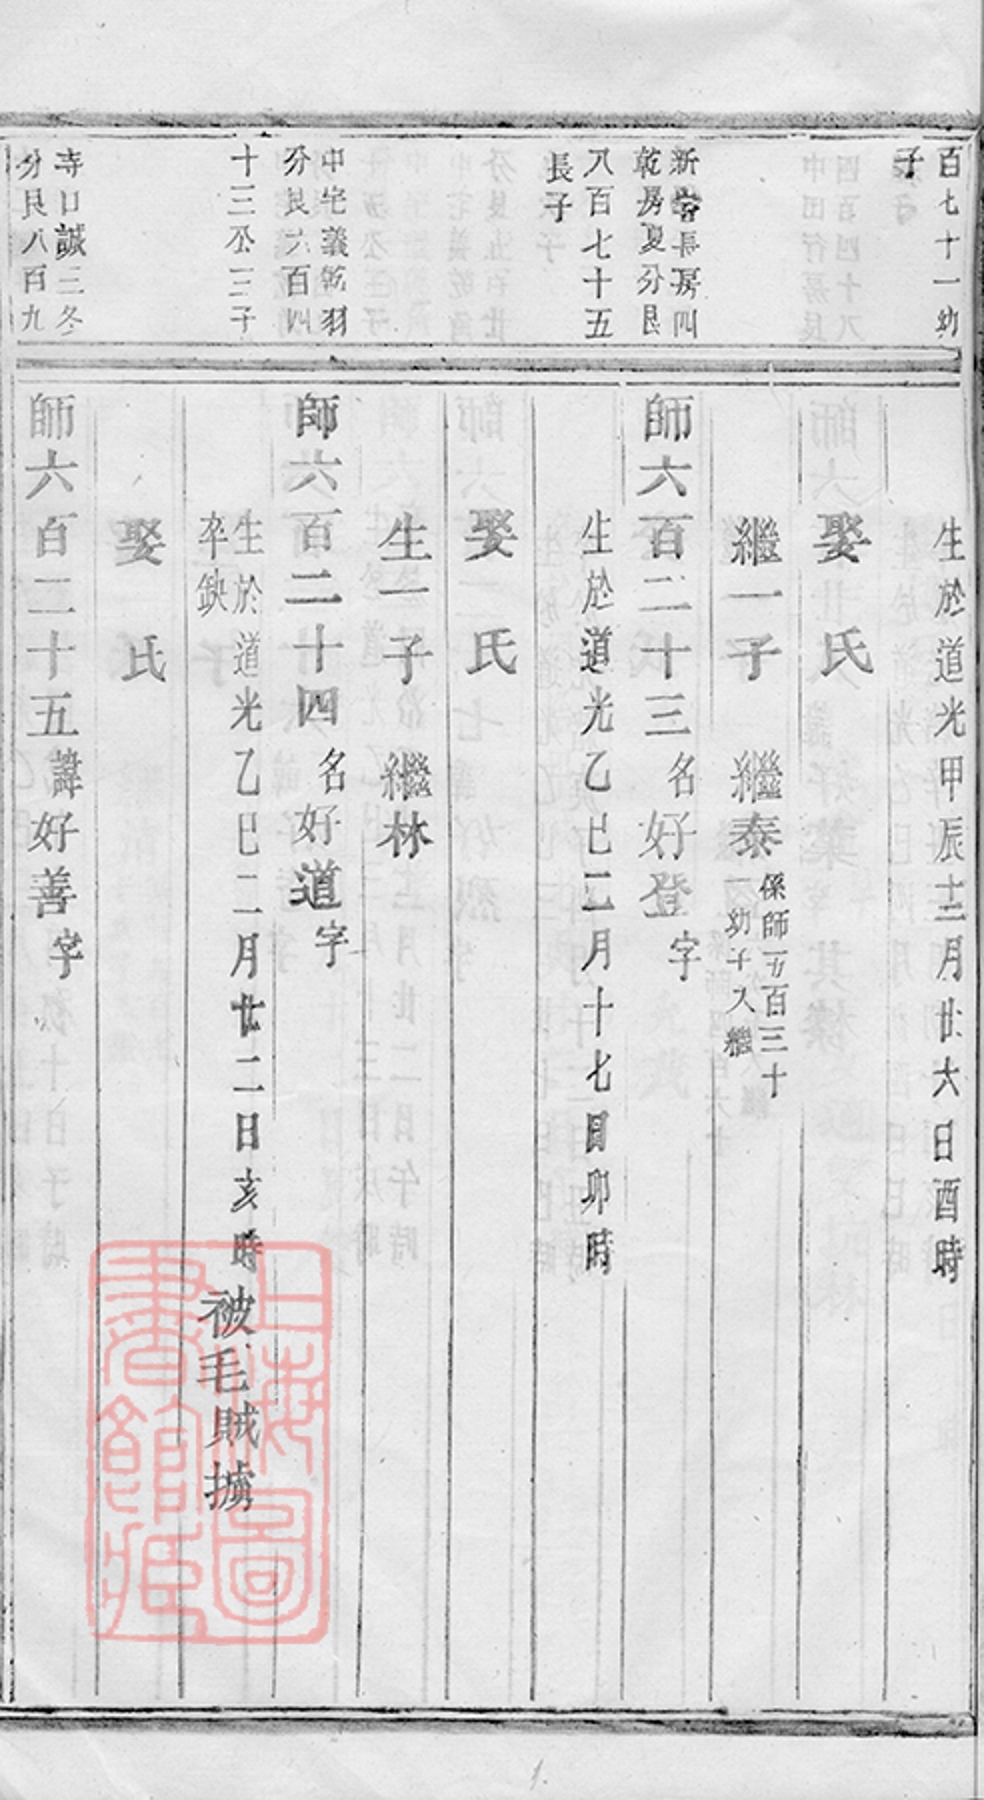 百七十一幼
子
生於道光甲辰十二月廿六日酉時
娶氏
繼一子 繼泰 係師一百三十
幼子入繼
新營長房四
乾房夏分艮
八百七十五
長子
師六百二十三 名好登字
生於道光乙巳二月十七日卯時
娶氏
生一子 繼林
中宅義乾羽
分艮六百四
十三公三子
師六百二十四 名好道字
生於道光乙巳二月廿二日亥時 被毛賊擄
卒缺
娶氏
寺口誠三冬
分艮八百九
師六百二十五 諱好善字
上海圖書館藏